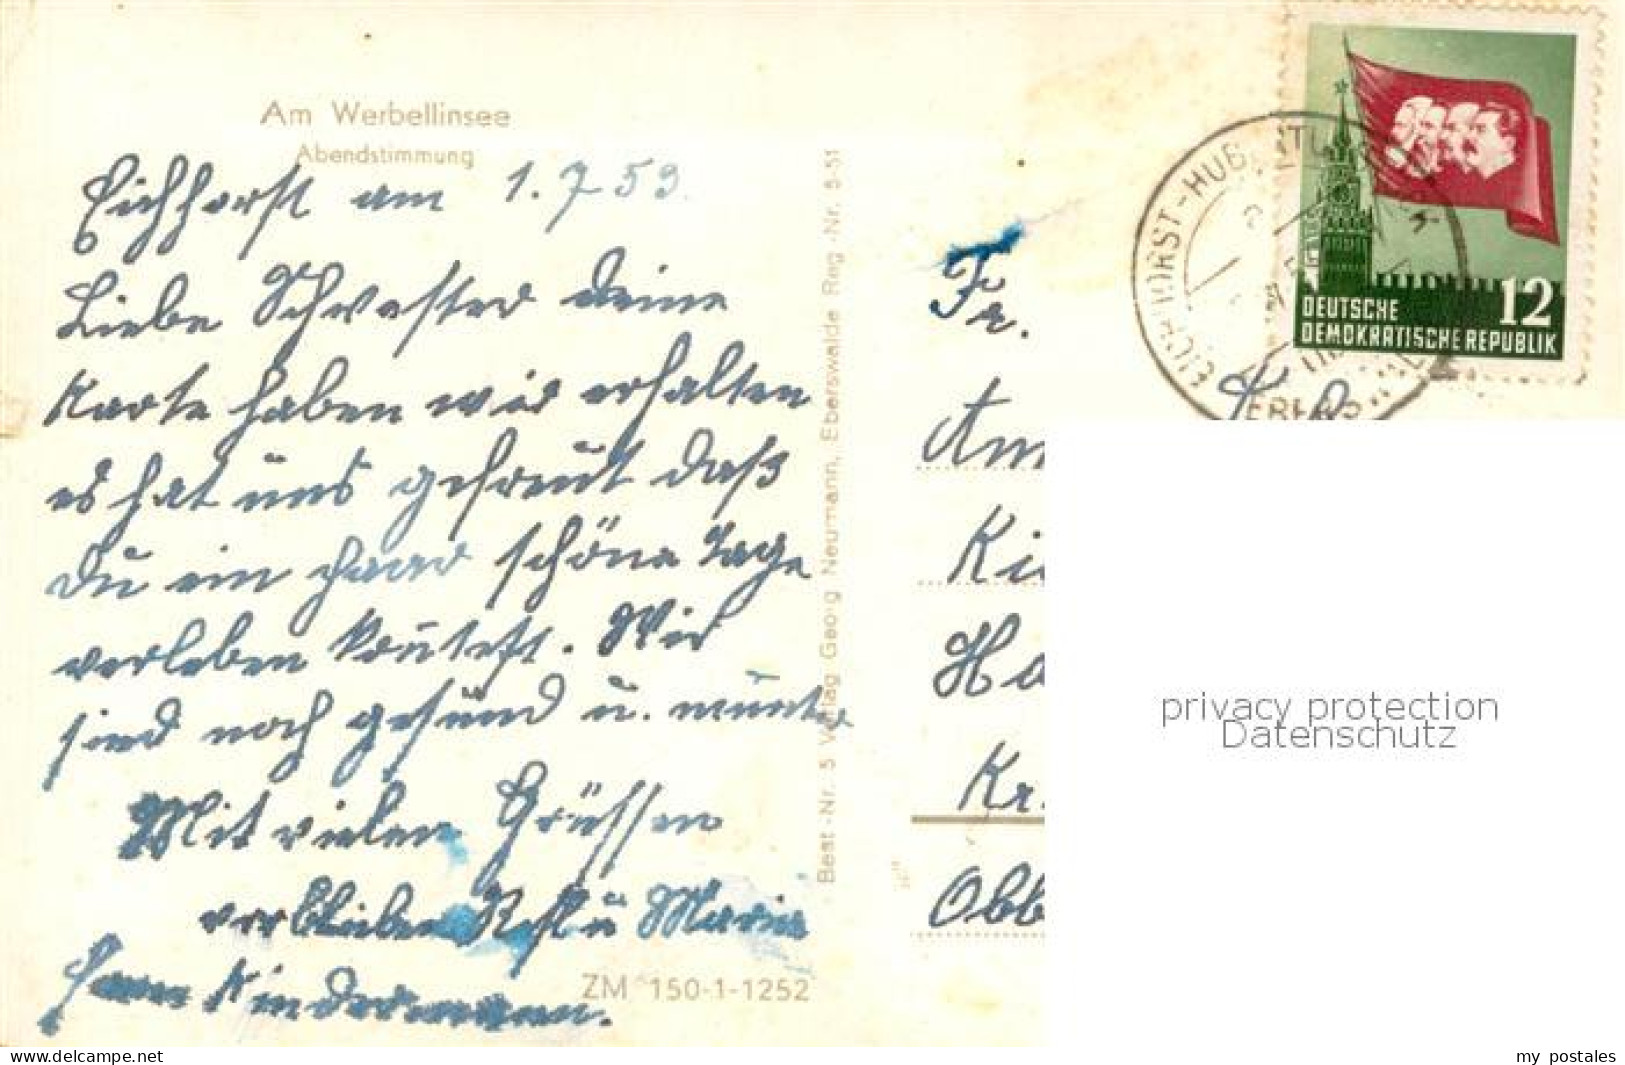 Am Werbellinsee
Abendstimmung
Eichhorst am 1.7 53.
Liebe Schwester deine
Karte haben wir erhalten
es hat uns gefreut daß
Du ein paar schöne Tage
verleben konntest. Wir
sind noch gesund u. munter
Mit vielen Grüssen
verbleiben u Maria
Kindermann.
ZM 150-1-1252
Best-Nr. 5 Verlag Georg Neumann, Eberswalde Reg-Nr. 5-51
12
DEUTSCHE
DEMOKRATISCHE REPUBLIK
Fr.
Am
Ki
Ha
Kr.
Obb
privacy protection
Datenschutz
https://www.ansichtskartenversand.com
my postales